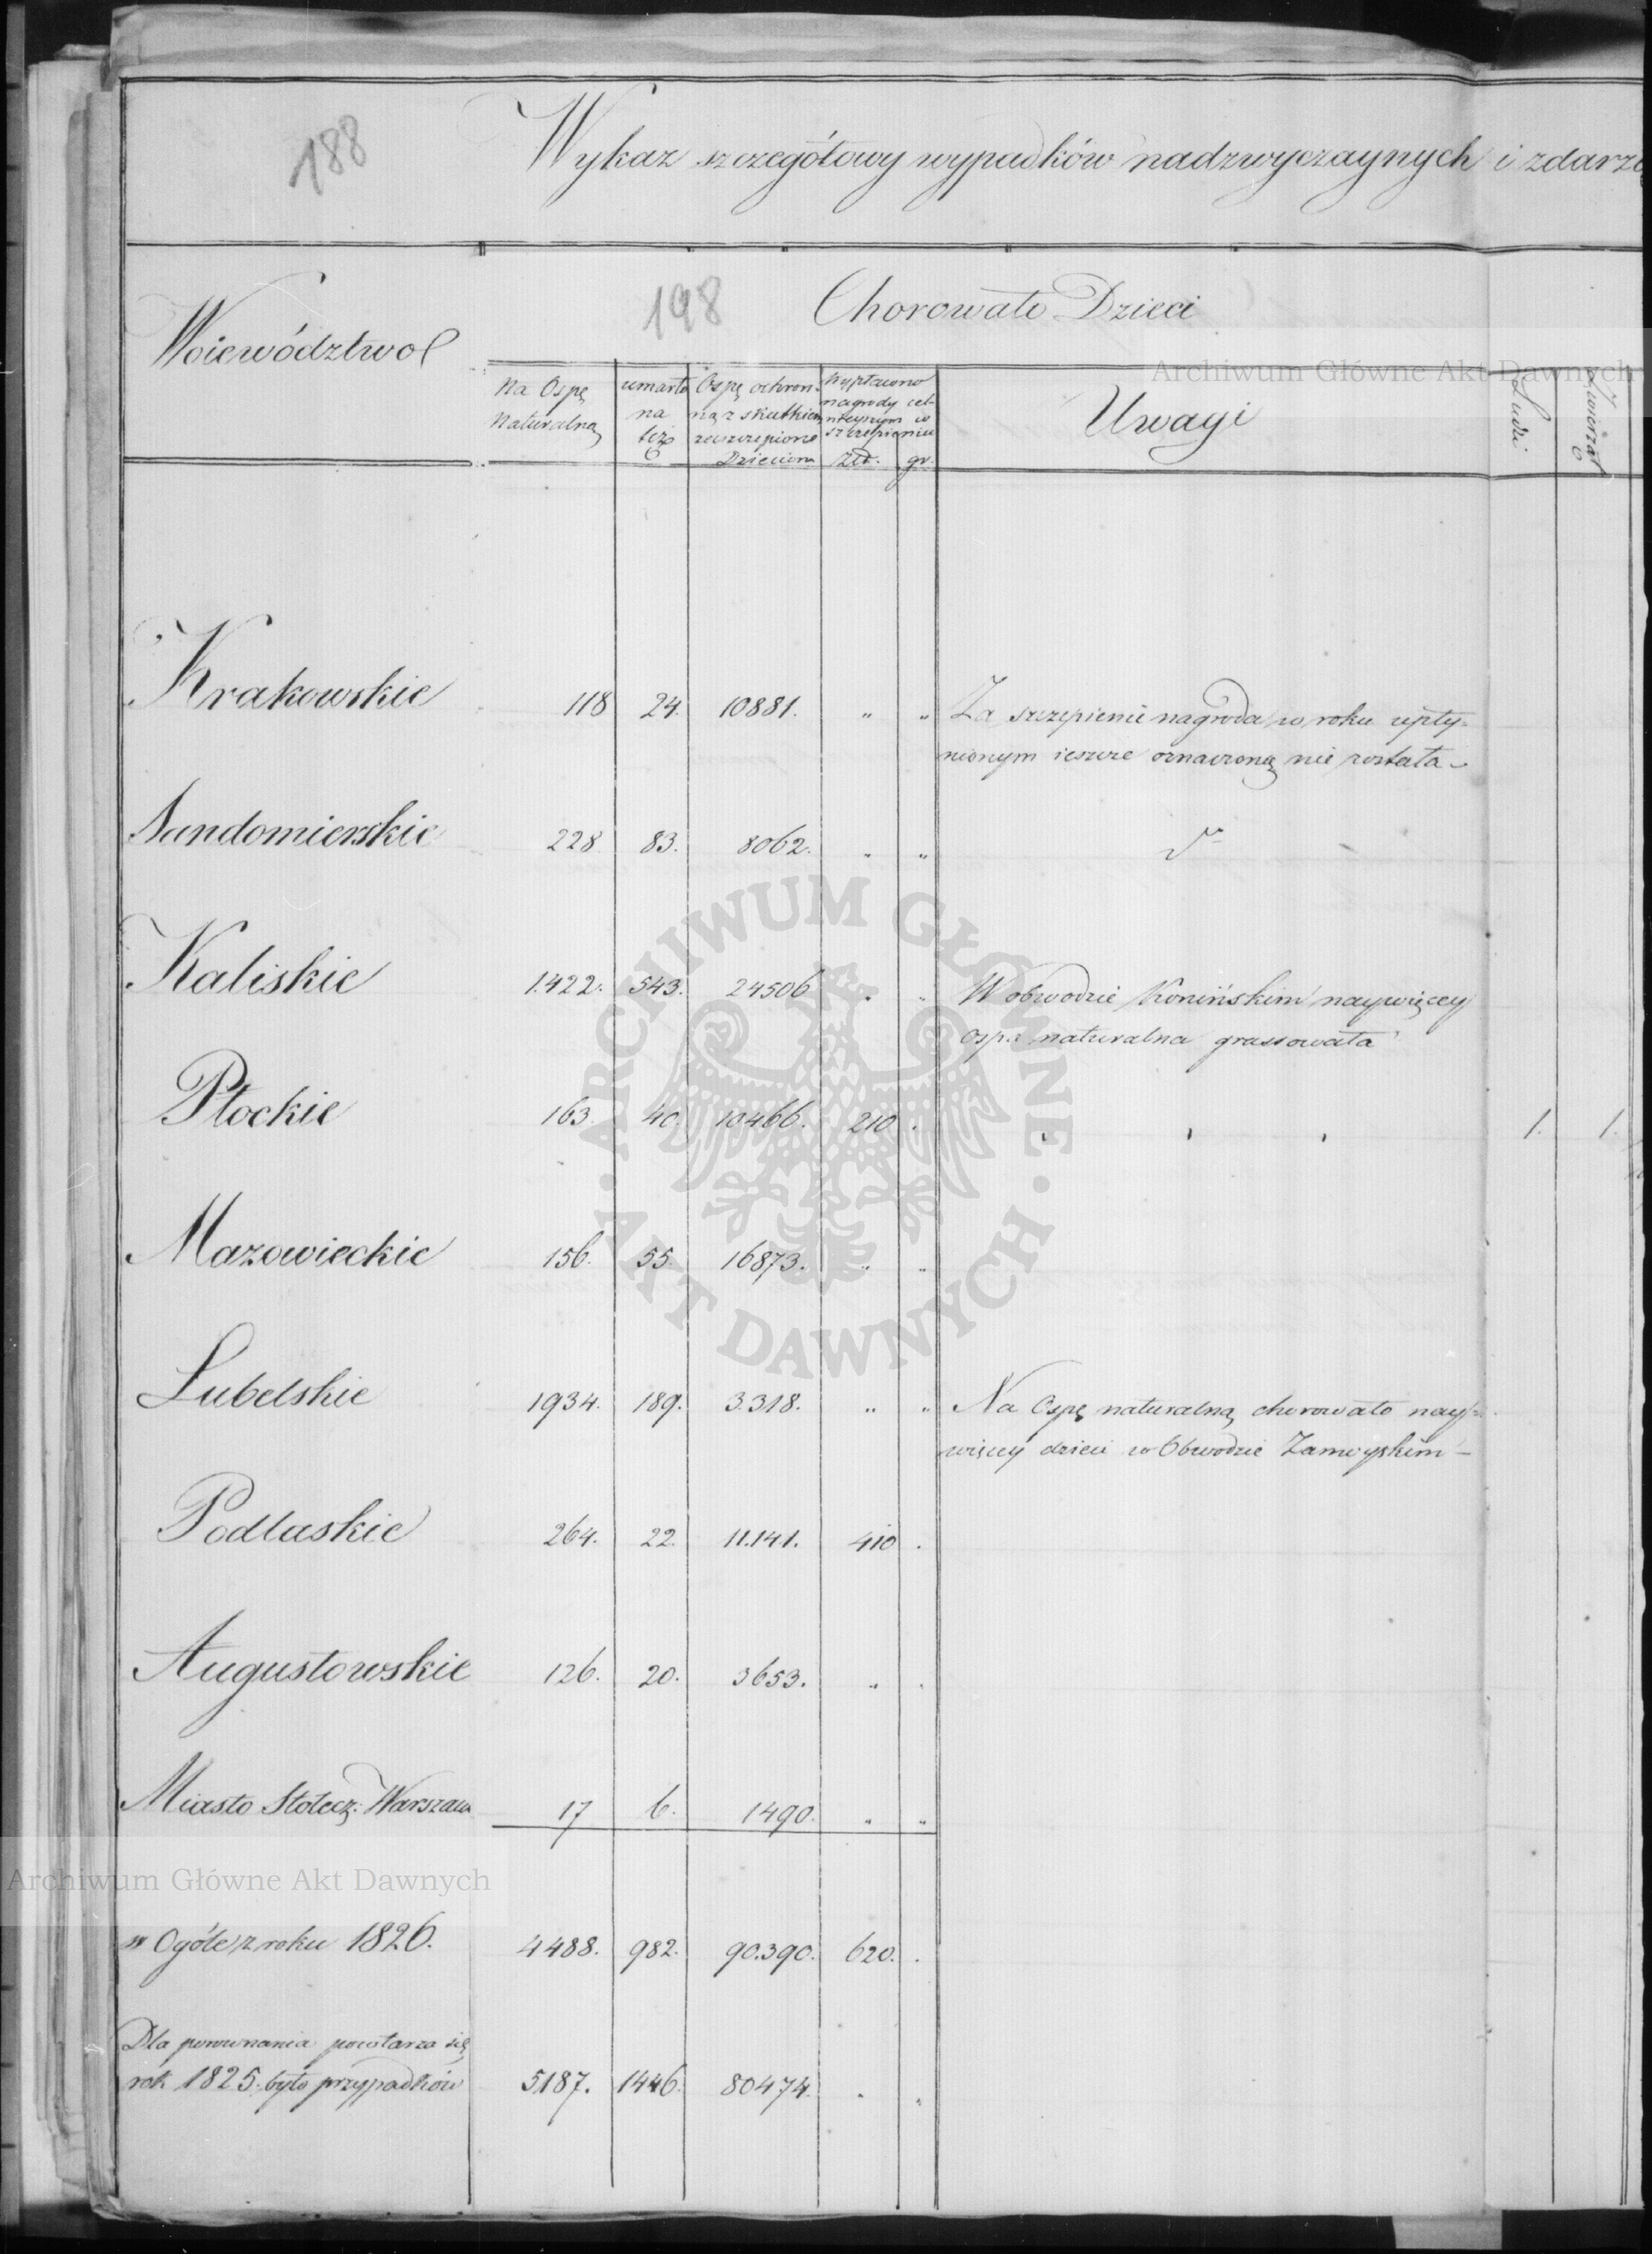 188
Wykaz szczegółowy wypadków nadzwyczaynych i zdarze
198
Chorowało Dzieci
Woiewództwo
Na Ospę Naturalną
umarło na też
Ospę ochronną z skutkiem zaszczepiono Dzieciom
Wypłacono nagrody celnieyszym w szczepieniu
Złt. gr.
Uwagi
Ludzi
Zwierząt
Archiwum Główne Akt Dawnych
Krakowskie 118 24. 10881. " " Za szczepienie nagroda w roku upły-
nionym ieszcze oznaczoną nie została
Sandomierskie 228 83. 8062. " " do
Kaliskie 1.422. 543. 24506 " " W obwodzie Konińskim naywięcey
ospa naturalna grassowała
Płockie 163. 40. 10466. 210 . 1. 1.
Mazowieckie 156. 55. 16873. " "
Lubelskie 1934. 189. 3.318. " " Na Ospę naturalną chorowało nay-
więcey dzieci w Obwodzie Zamoyskim -
Podlaskie 264. 22. 11.141. 410 .
Augustowskie 126. 20. 3653. " .
Miasto Stołecz: Warszawa 17 6. 1490. " "
Archiwum Główne Akt Dawnych
w Ogóle z roku 1826. 4488. 982. 90.390. 620. .
Dla porownania powtarza się
rok 1825. było przypadków 5187. 1446. 80474. . "
ARCHIWUM GŁÓWNE · AKT DAWNYCH ·